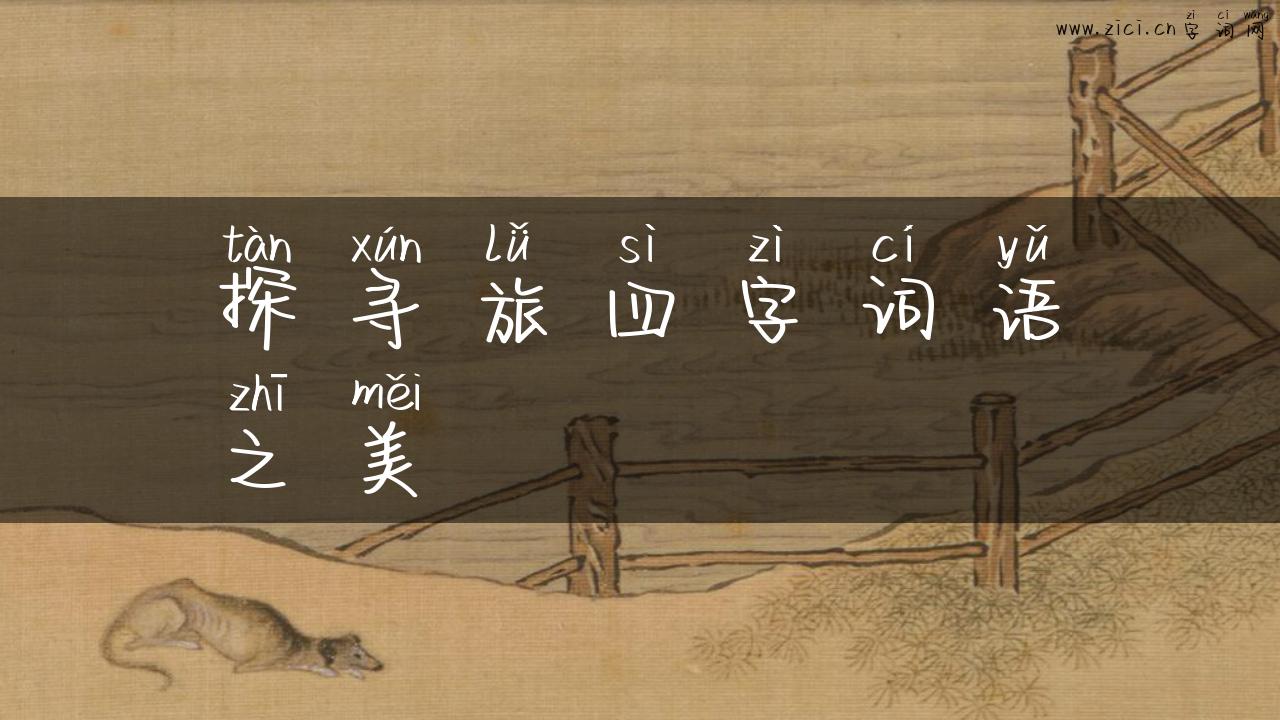 zì cí wǎng
www.zici.cn 字词网
tàn xún lǚ sì zì cí yǔ
探寻旅四字词语
zhī měi
之美